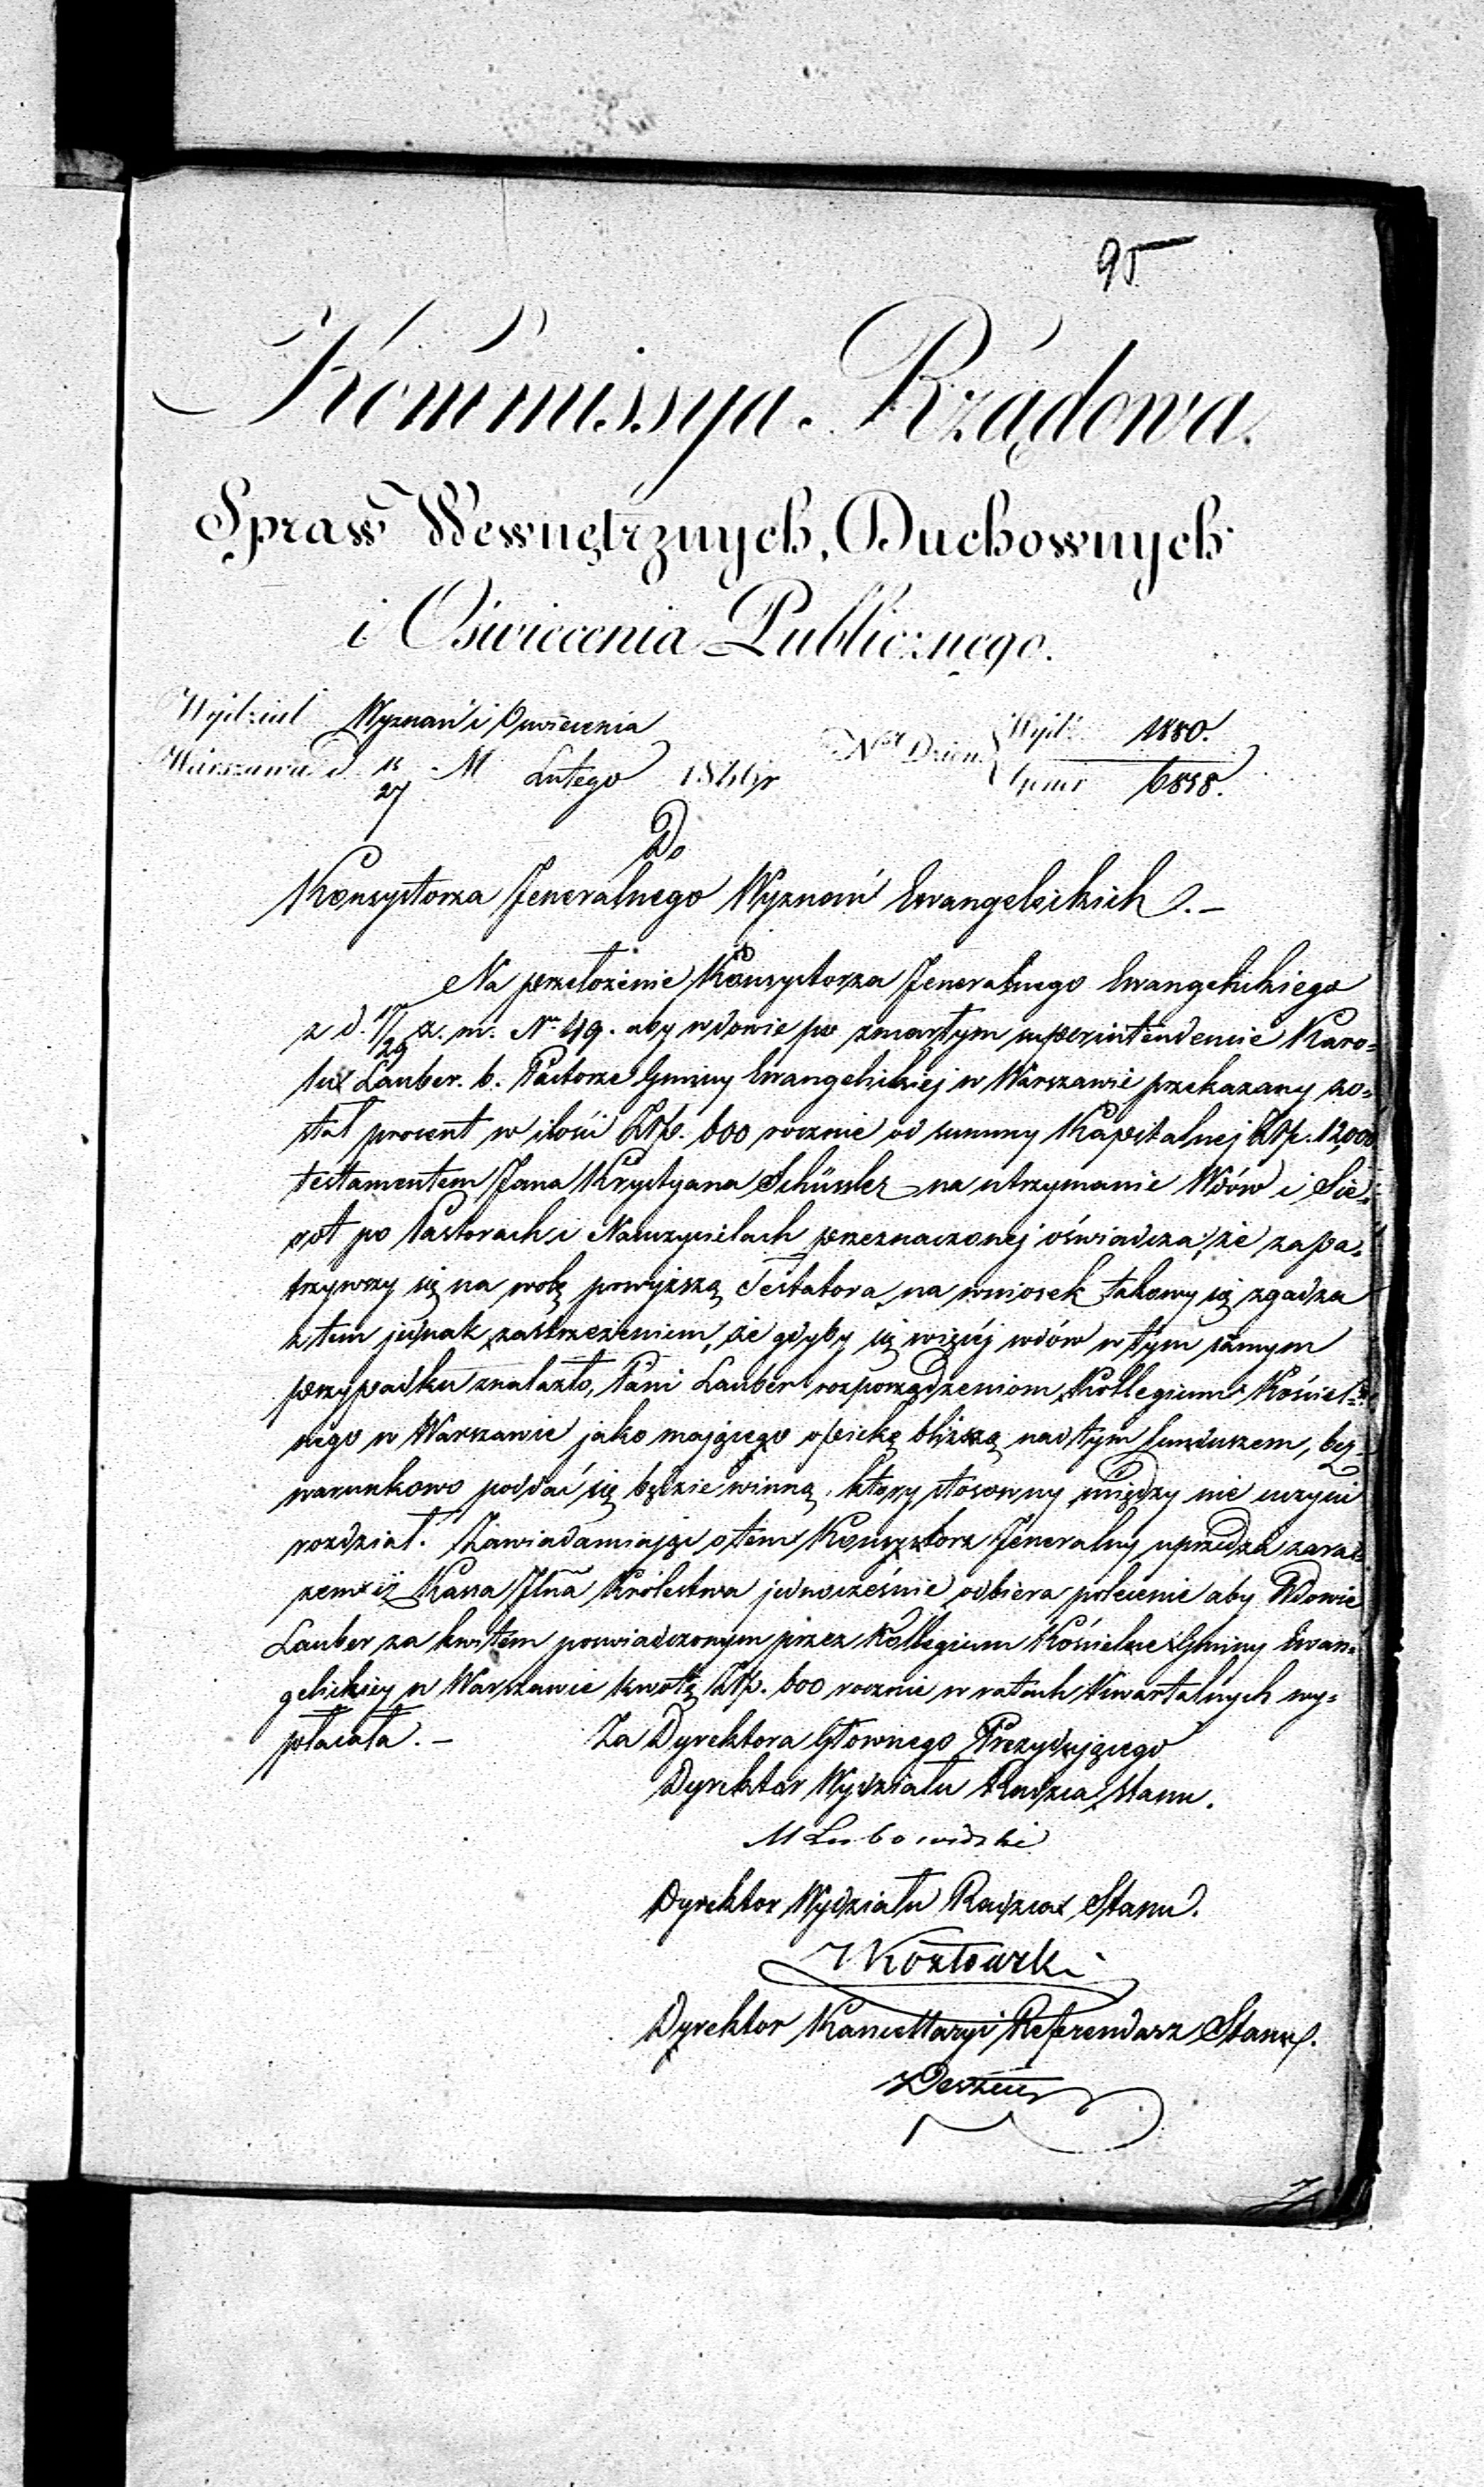 95
Kommissya Rządowa.
Spraw Wewnętrznych, Duchownych
i Oświecenia Publicznego.
Wydział Wyznań i Oświecenia
Nr Dzien. Wydz. 1880.
Warszawa d. 15/27 M Lutego 184 r
Gener 6858.
Do
Konsystorza Jeneralnego Wyznań Ewangelickich. —
Na przełożenie Konsystorza Jeneralnego Ewangelickiego
z d. 17/29 z. m. Nr 49. aby wdowie po zmarłym superintendencie Karo=
lu Lauber. b. Pastorze Gminy Ewangelickiej w Warszawie przekazany zo=
stał procent w ilości Złp. 600 rocznie od summy Kapitalnej Złp. 12,000
testamentem Jana Krystyana Schüssler na utrzymanie Wdów i Sie=
rot po Pastorach i Nauczycielach przeznaczonej oświadcza, że zapa=
trzywszy się na wolę powyższą Testatora, na wniosek takowy się zgadza
z tem jednak zastrzeżeniem, że gdyby się więcéj wdów w tym samym
przypadku znalazło, Pani Lauber rozporządzeniom Kollegium Kościel=
nego w Warszawie jako mającego opiekę bliższą nad tym funduszem, bez=
warunkowo poddać się będzie winną, który stosowny między nie uczyni
rozdział. Zawiadamiając o tem Konsystorz Jeneralny uprzedza zara=
zem iż Kassa Jlña Królestwa jednocześnie odbiera polecenie aby Wdowie
Lauber za kwitem poswiadczonym przez Kollegium Kościelne Gminy Ewan=
gelickiey w Warszawie kwotę Złp. 600 rocznie w ratach Kwartalnych wy=
płacała. — Za Dyrektora Głownego Prezydującego
Dyrektor Wydziału Radzca Stanu.
M Lubowidzki
Dyrektor Wydziału Radzca Stanu.
Kozłowski
Dyrektor Kancellaryi Referendarz Stanu.